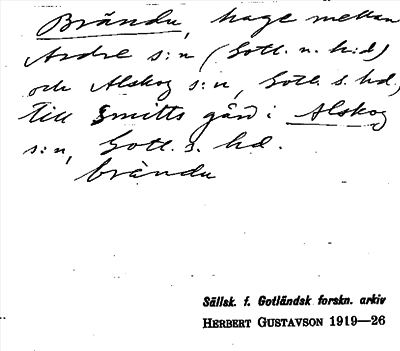 Brändu, hage mellan
Ardre s:n (Gotl. n. h:d)
och Alskog s:n, Gotl. s. hd,
till Smitts gård i Alskog
s:n, Gotl. s. hd.
brändu
Sällsk. f. Gotländsk forskn. arkiv
HERBERT GUSTAVSON 1919—26